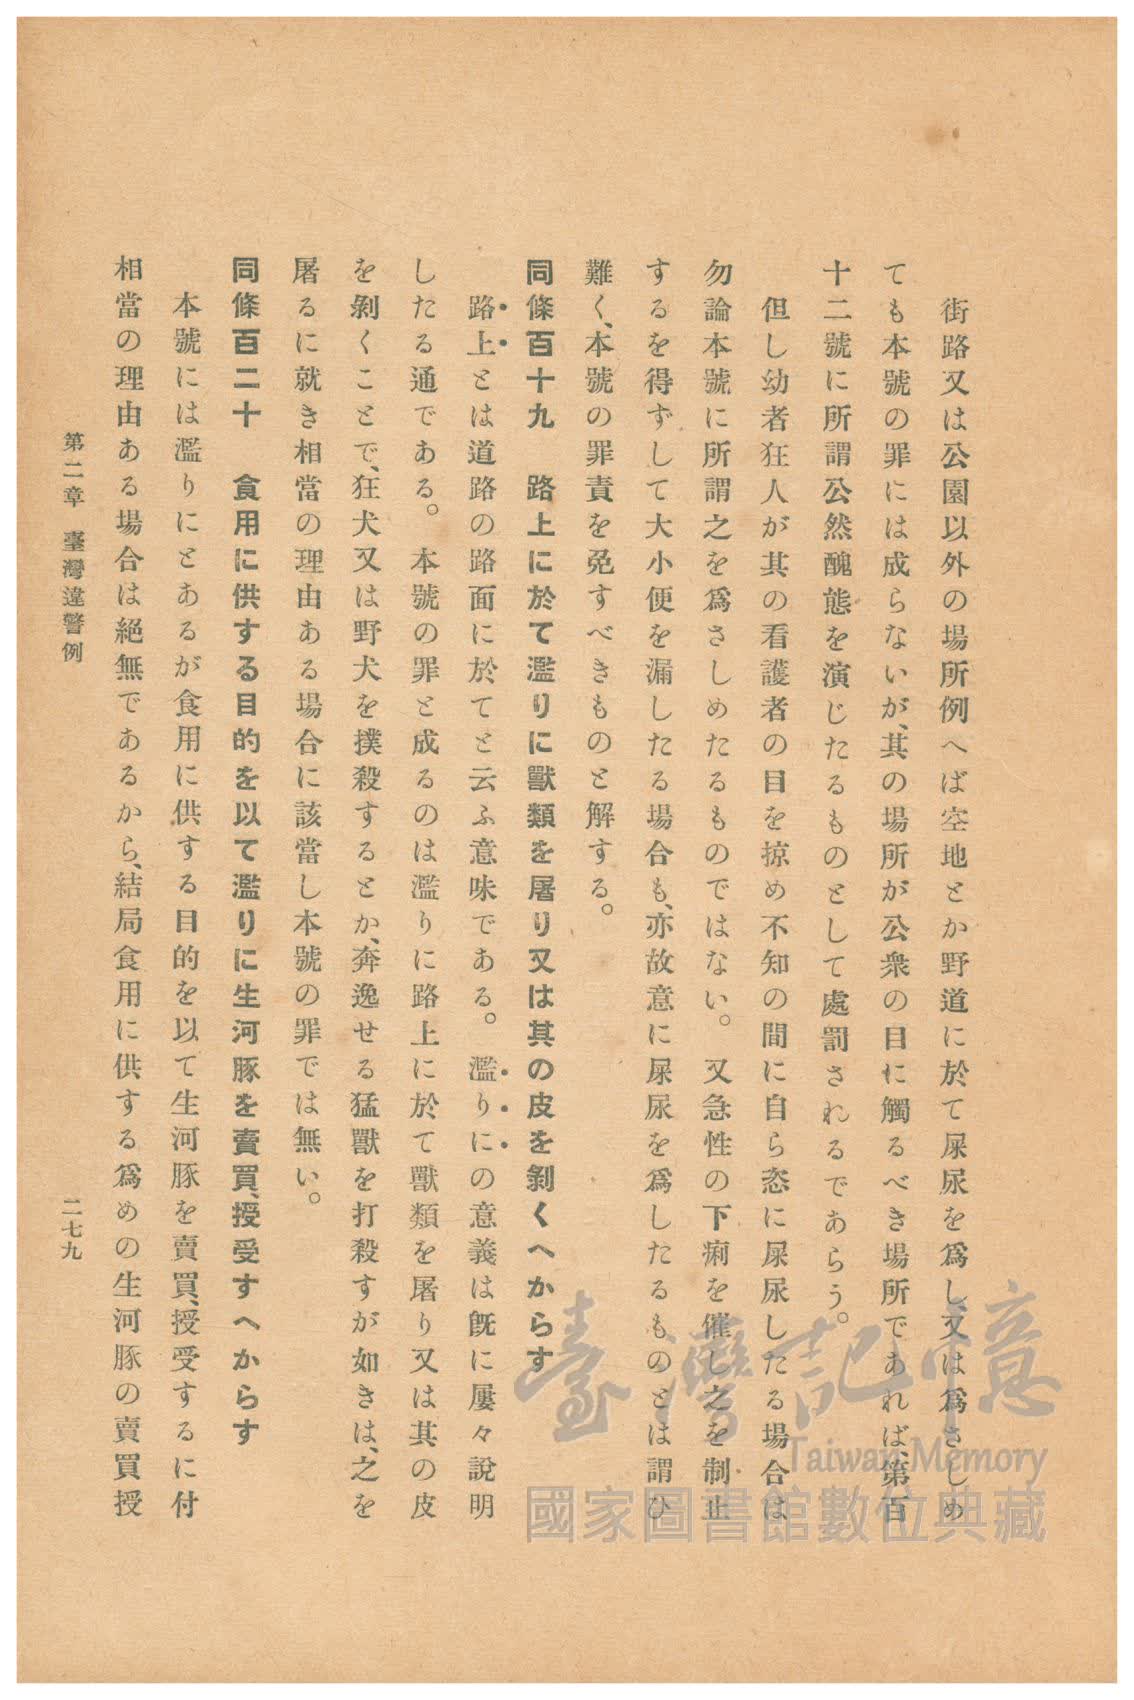 街路又は公園以外の場所例へば空地とか野道に於て屎尿を爲し、又は爲さしめ
ても本號の罪には成らないが、其の場所が公衆の目に觸るべき場所であれば、第百
十二號に所謂公然醜態を演じたるものとして處罰されるであらう。
但し幼者狂人が其の看護者の目を掠め不知の間に自ら恣に屎尿したる場合は
勿論本號に所謂之を爲さしめたるものではない。又急性の下痢を催し之を制止
するを得ずして大小便を漏したる場合も、亦故意に屎尿を爲したるものとは謂ひ
難く、本號の罪責を免すべきものと解する。
同條百十九　路上に於て濫りに獸類を屠り又は其の皮を剝くへからす
路上とは道路の路面に於てと云ふ意味である。濫りにの意義は旣に屢々說明
したる通である。本號の罪と成るのは濫りに路上に於て獸類を屠り又は其の皮
を剝くことで、狂犬又は野犬を撲殺するとか、奔逸せる猛獸を打殺すが如きは、之を
屠るに就き相當の理由ある場合に該當し本號の罪では無い。
同條百二十　食用に供する目的を以て濫りに生河豚を賣買、授受すへからす
本號には濫りにとあるが食用に供する目的を以て生河豚を賣買、授受するに付
相當の理由ある場合は絕無であるから、結局食用に供する爲めの生河豚の賣買授
第二章　臺灣違警例
二七九
臺灣記憶
Taiwan Memory
國家圖書館數位典藏